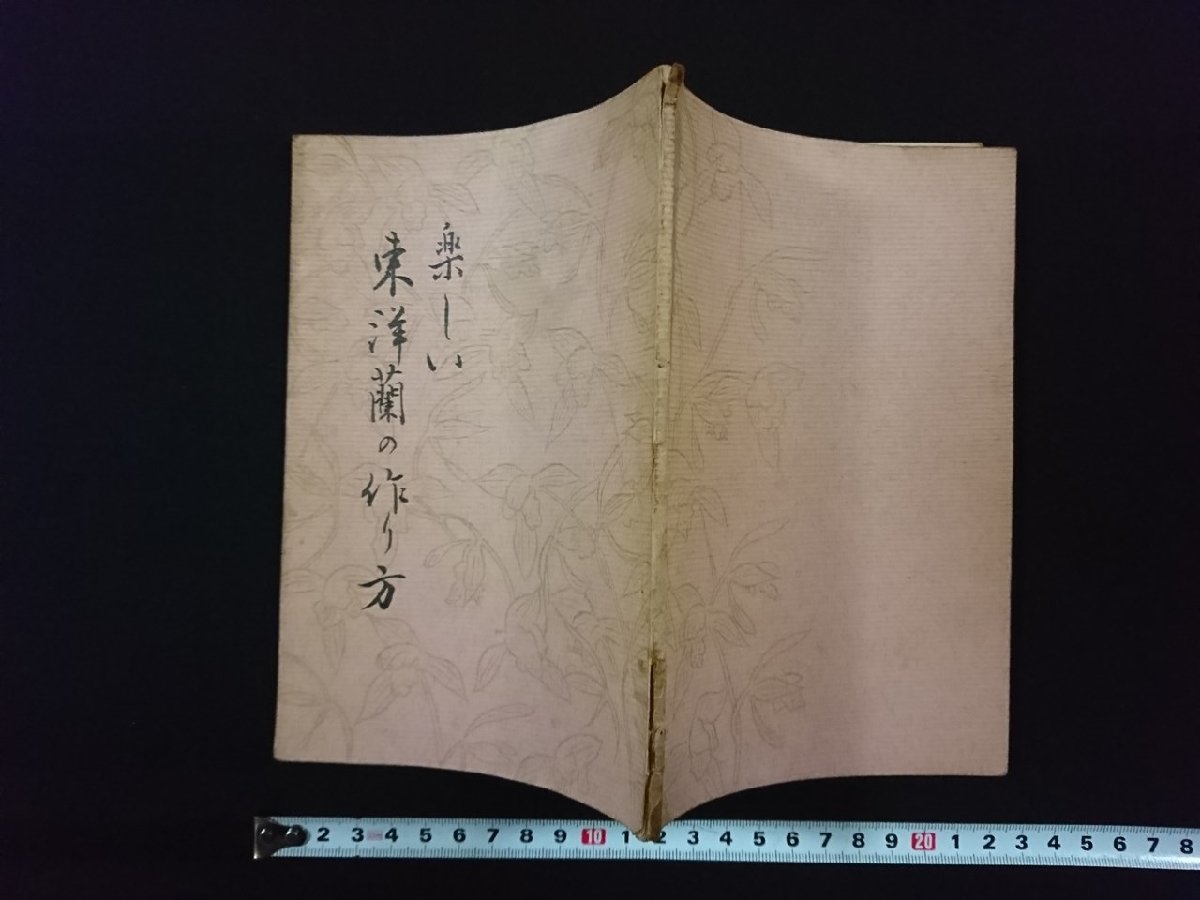 楽しい
東洋蘭の作り方
2 3 4 5 6 7 8 9 10 1 2 3 4 5 6 7 8 9 20 1 2 3 4 5 6 7 8